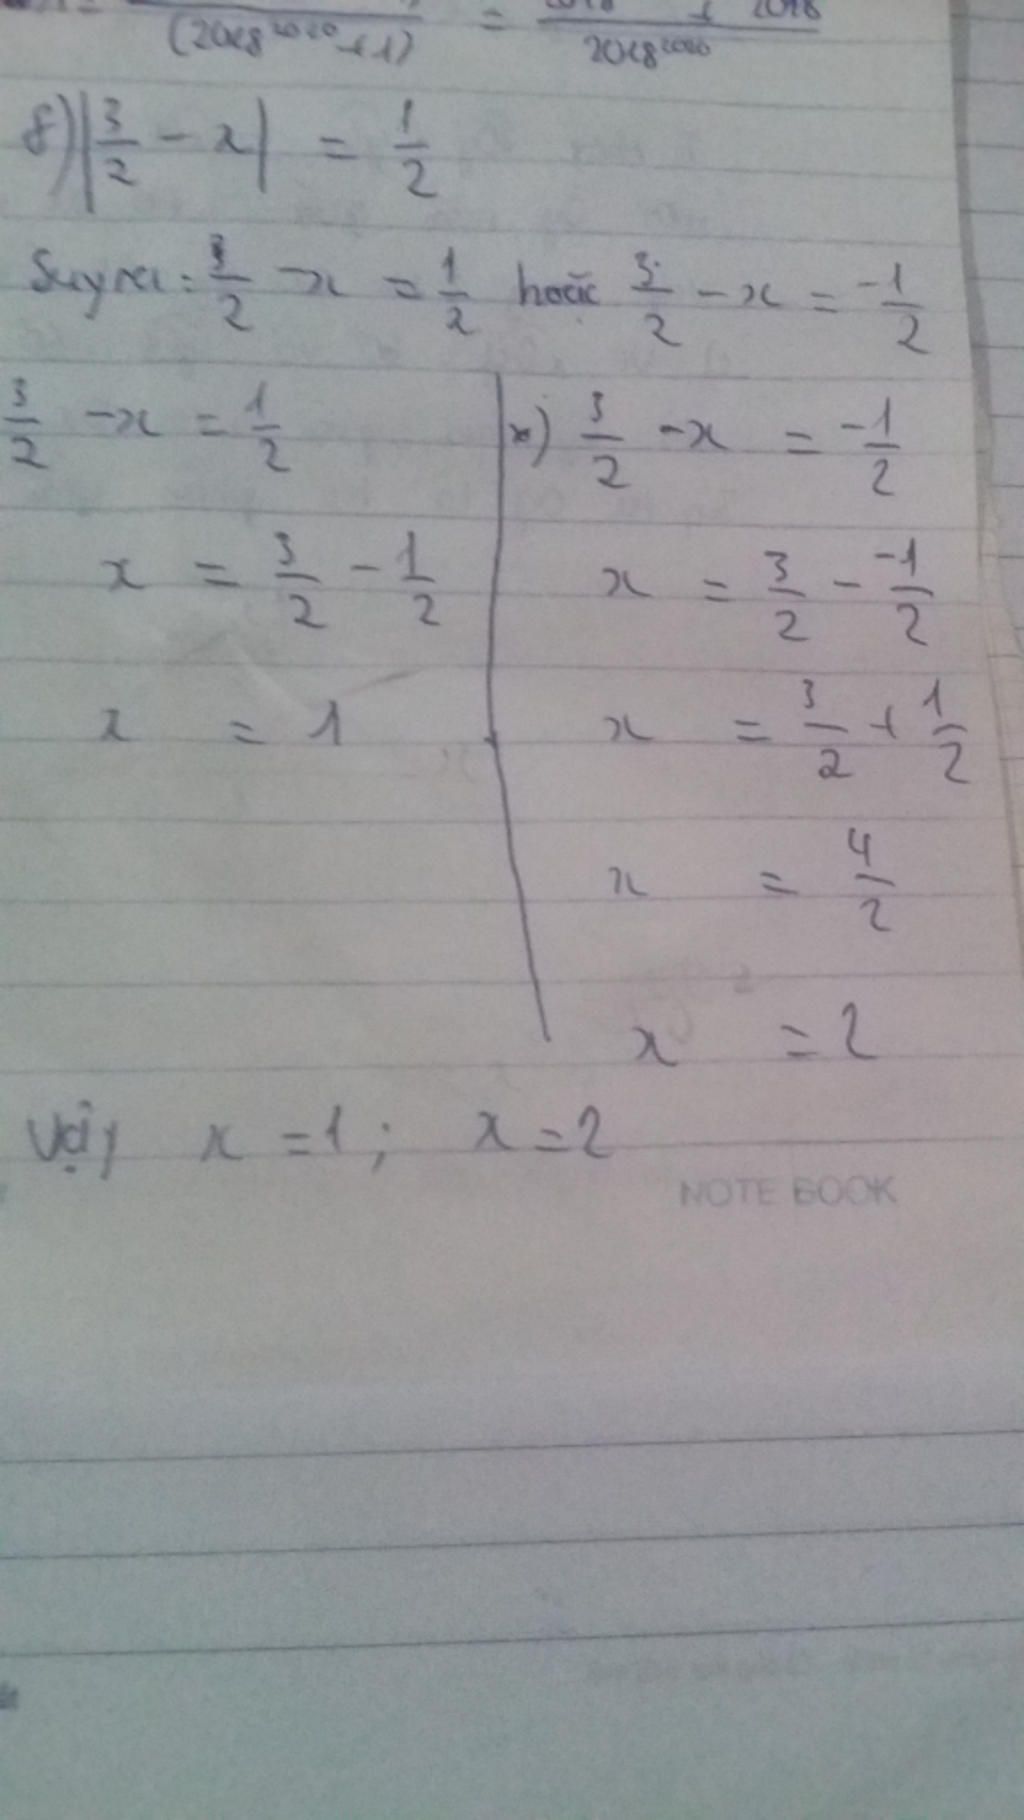 (2018²⁰²⁰+1) = 2018²⁰²⁰
8) |3/2 - x| = 1/2
Suy ra: 3/2 - x = 1/2 hoặc 3/2 - x = -1/2
3/2 - x = 1/2
x = 3/2 - 1/2
x = 1
*) 3/2 - x = -1/2
x = 3/2 - -1/2
x = 3/2 + 1/2
x = 4/2
x = 2
Vậy x = 1; x = 2
NOTE BOOK